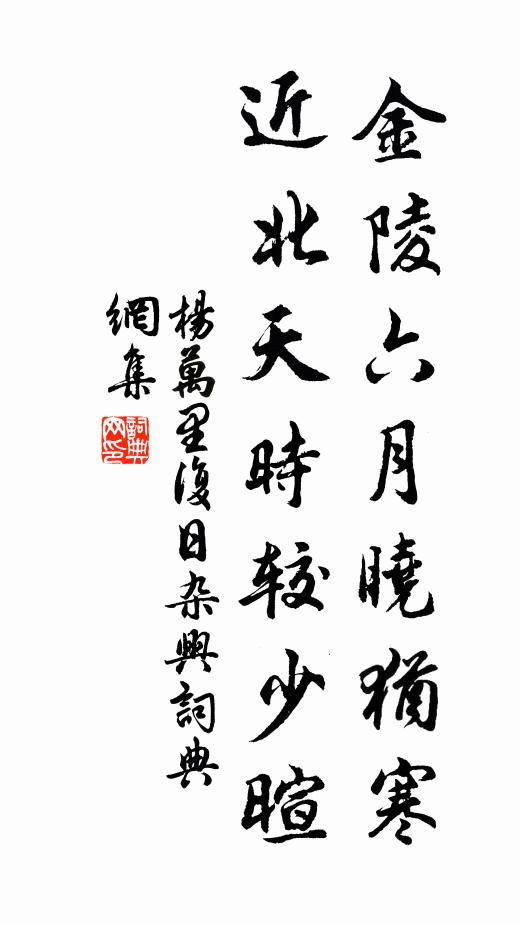 金陵六月曉猶寒
近北天時較少暄
楊萬里復日杂興詞典
網集
詞典
网印